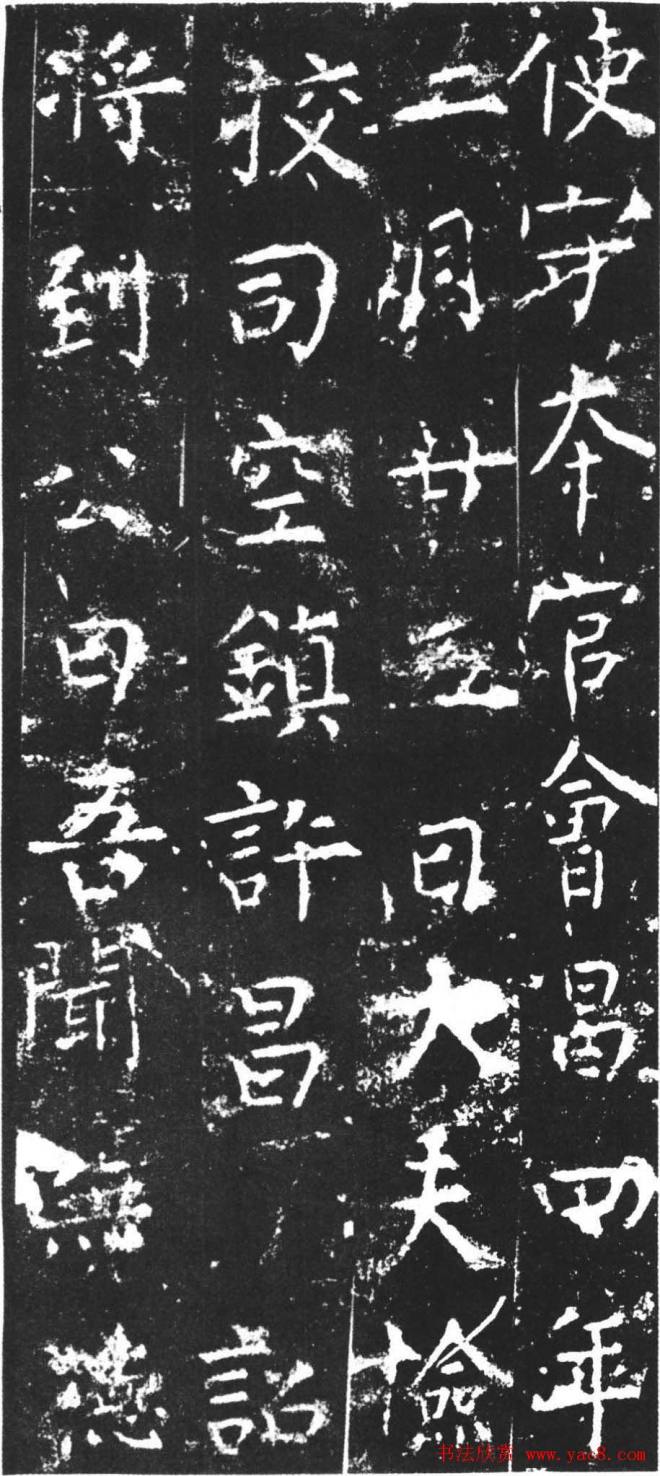 使守本官會昌四年
二月廿日大夫檢
挍司空鎮許昌詔
將到公曰吾聞無德
书法欣赏 www.yac8.com